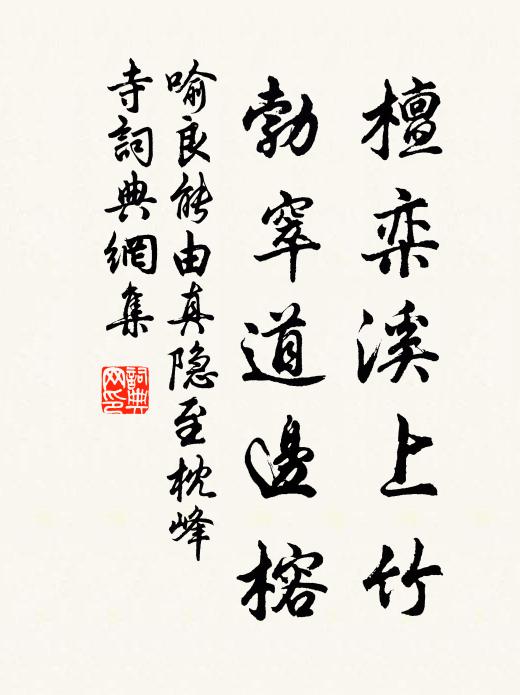 檀栾溪上竹
勃窣道邊榕
喻良能由真隐至枕峰
寺詞典網集
詞典网印